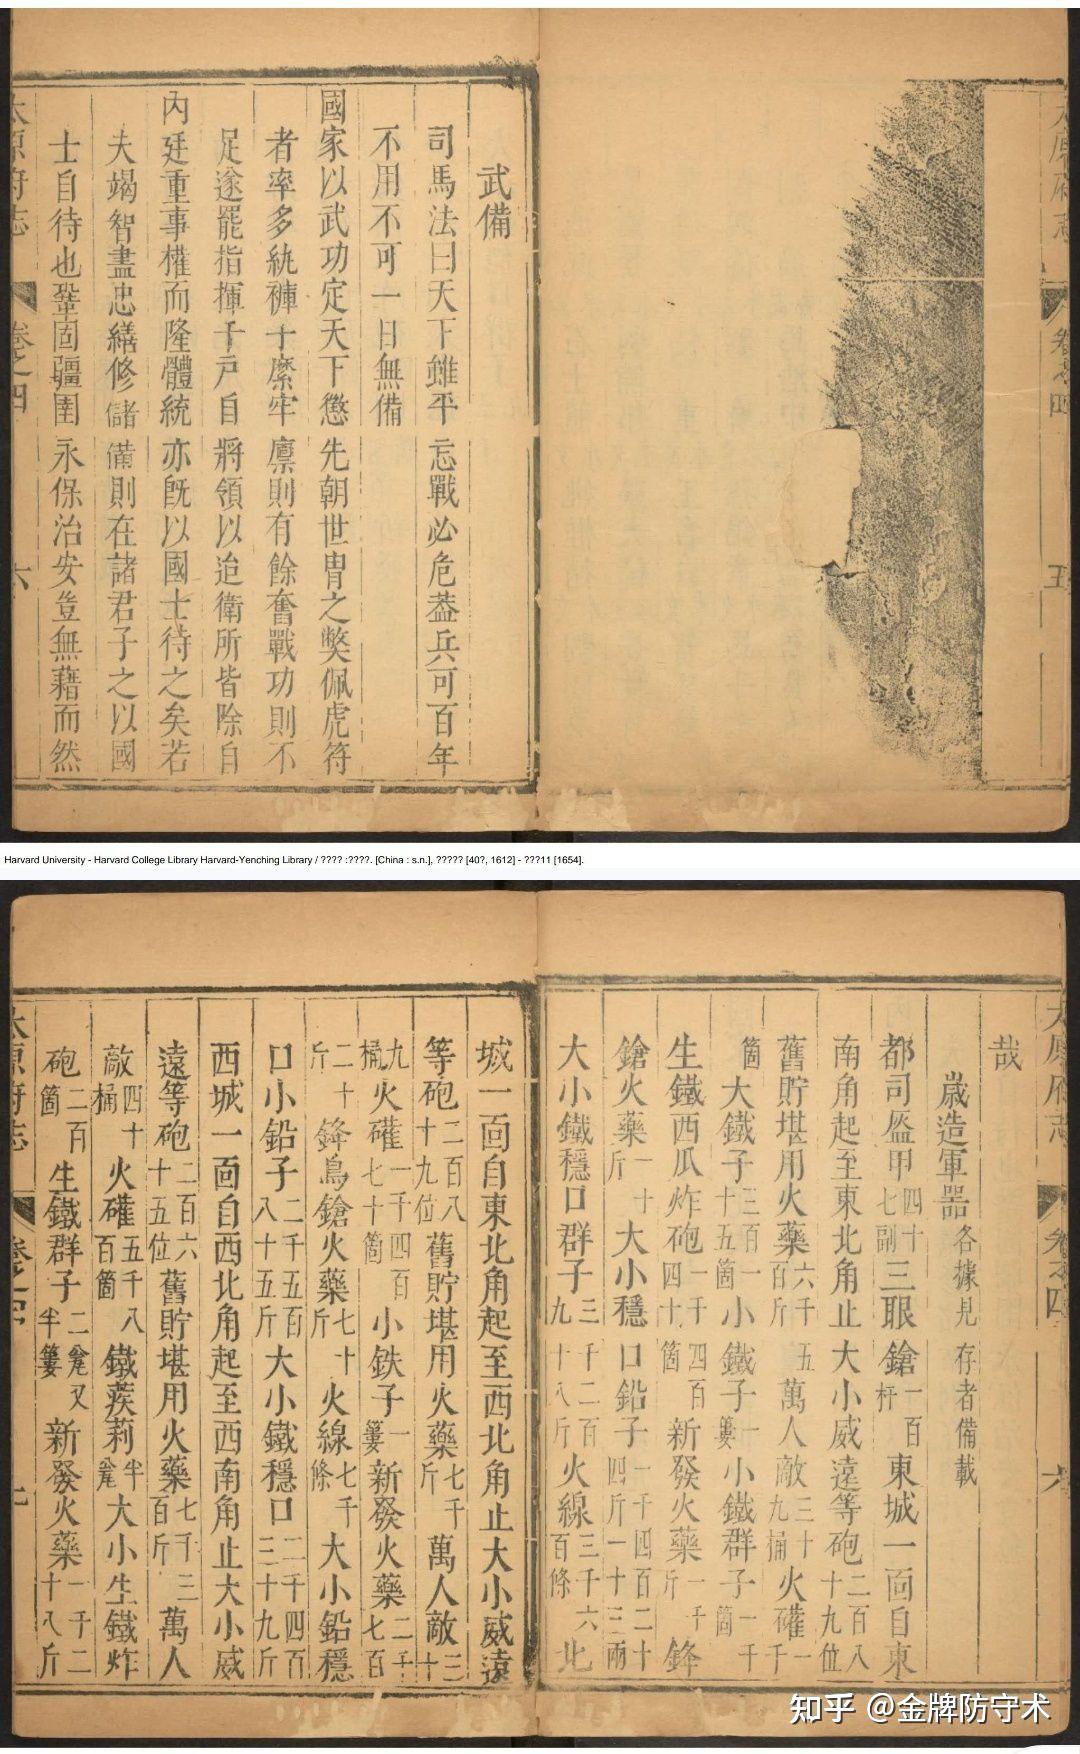 太原府志 卷之四 五
武備
司馬法曰天下雖平忘戰必危葢兵可百年
不用不可一日無備
國家以武功定天下懲先朝世胄之獘佩虎符
者率多紈褲子縻牢廪則有餘奮戰功則不
足遂罷指揮千戶自將領以迨衛所皆除自
內廷重事權而隆體統亦旣以國士待之矣若
夫竭智盡忠繕修儲備則在諸君子之以國
士自待也鞏固疆圉永保治安豈無藉而然
太原府志 卷之四 六
Harvard University - Harvard College Library Harvard-Yenching Library / ???? :????. [China : s.n.], ????? [40?, 1612] - ???11 [1654].
太原府志 卷之四 六
哉
歲造軍器各據見存者備載
都司盔甲四十七副三眼鎗一百杆東城一面自東
南角起至東北角止大小威遠等砲二百八十九位
舊貯堪用火藥六千五百斤萬人敵三十九桶火礶一千
箇大鐵子三百一十五箇小鐵子一簍小鐵群子一千箇
生鐵西瓜炸砲一千四百四十箇新發火藥一千斤鋒
鎗火藥一十斤大小穩口鉛子一千四百二十四斤一十三兩
大小鐵穩口群子三千二百九十八斤火線三千六百條北
城一面自東北角起至西北角止大小威遠
等砲二百八十九位舊貯堪用火藥七千斤萬人敵三十
九桶火礶一千四百七十箇小鉄子一簍新發火藥二千七百
二十斤鋒鳥鎗火藥七十斤火線七千條大小鉛穩
口小鉛子二千五百八十五斤大小鐵穩口二千四百三十九斤
西城一面自西北角起至西南角止大小威
遠等砲二百六十五位舊貯堪用火藥七千三百斤萬人
敵四十桶火礶五千八百箇鐵蒺莉半甕大小生鐵炸
砲二百箇生鐵群子二甕又半簍新發火藥一千二十八斤
太原府志 卷之四 七
知乎 @金牌防守术